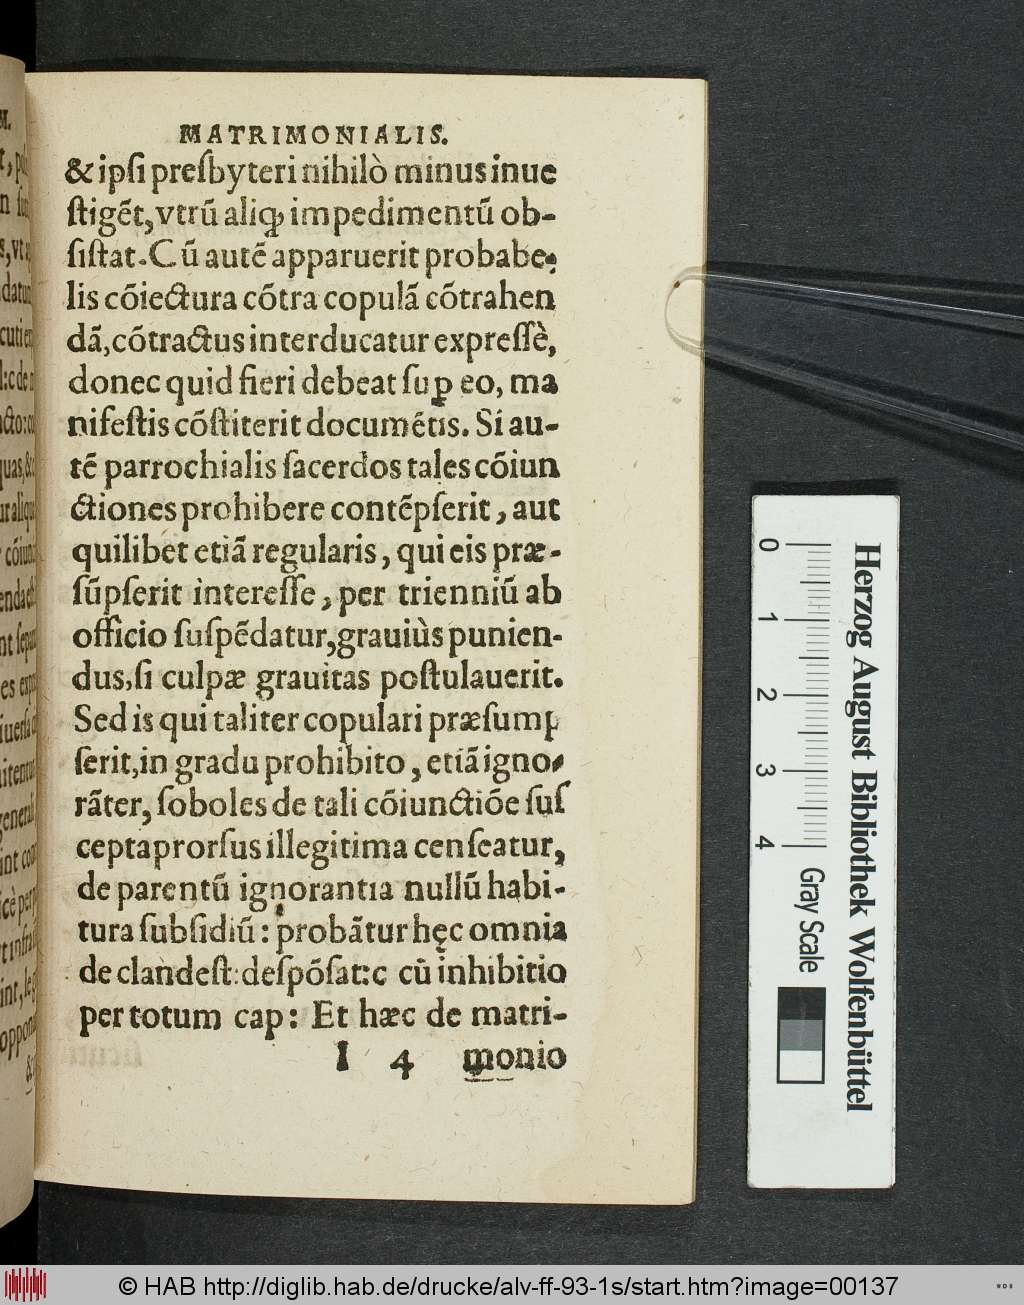 MATRIMONIALIS.
& ipſi preſbyteri nihilò minus inue
ſtigẽt, vtrũ aliꝙ impedimentũ ob-
ſiſtat. Cũ autẽ apparuerit probabe-
lis cõiectura cõtra copulã cõtrahen
dã, cõtractus interducatur expreſſè,
donec quid fieri debeat ſuꝑ eo, ma
nifeſtis cõſtiterit documẽtis. Si au-
tẽ parrochialis ſacerdos tales cõiun
ctiones prohibere contẽpſerit, aut
quilibet etiã regularis, qui eis præ-
ſũpſerit intereſſe, per trienniũ ab
officio ſuſpẽdatur, grauiùs punien-
dus, ſi culpæ grauitas poſtulauerit.
Sed is qui taliter copulari præſump
ſerit, in gradu prohibito, etiã igno-
rãter, ſoboles de tali cõiunctiõe ſuſ
cepta prorſus illegitima cenſeatur,
de parentũ ignorantia nullũ habi-
tura ſubſidiũ: probãtur hęc omnia
de clandeſt: deſpõſat: c cũ inhibitio
per totum cap: Et hæc de matri-
I 4 monio
0 1 2 3 4
Gray Scale
Herzog August Bibliothek Wolfenbüttel
© HAB http://diglib.hab.de/drucke/alv-ff-93-1s/start.htm?image=00137